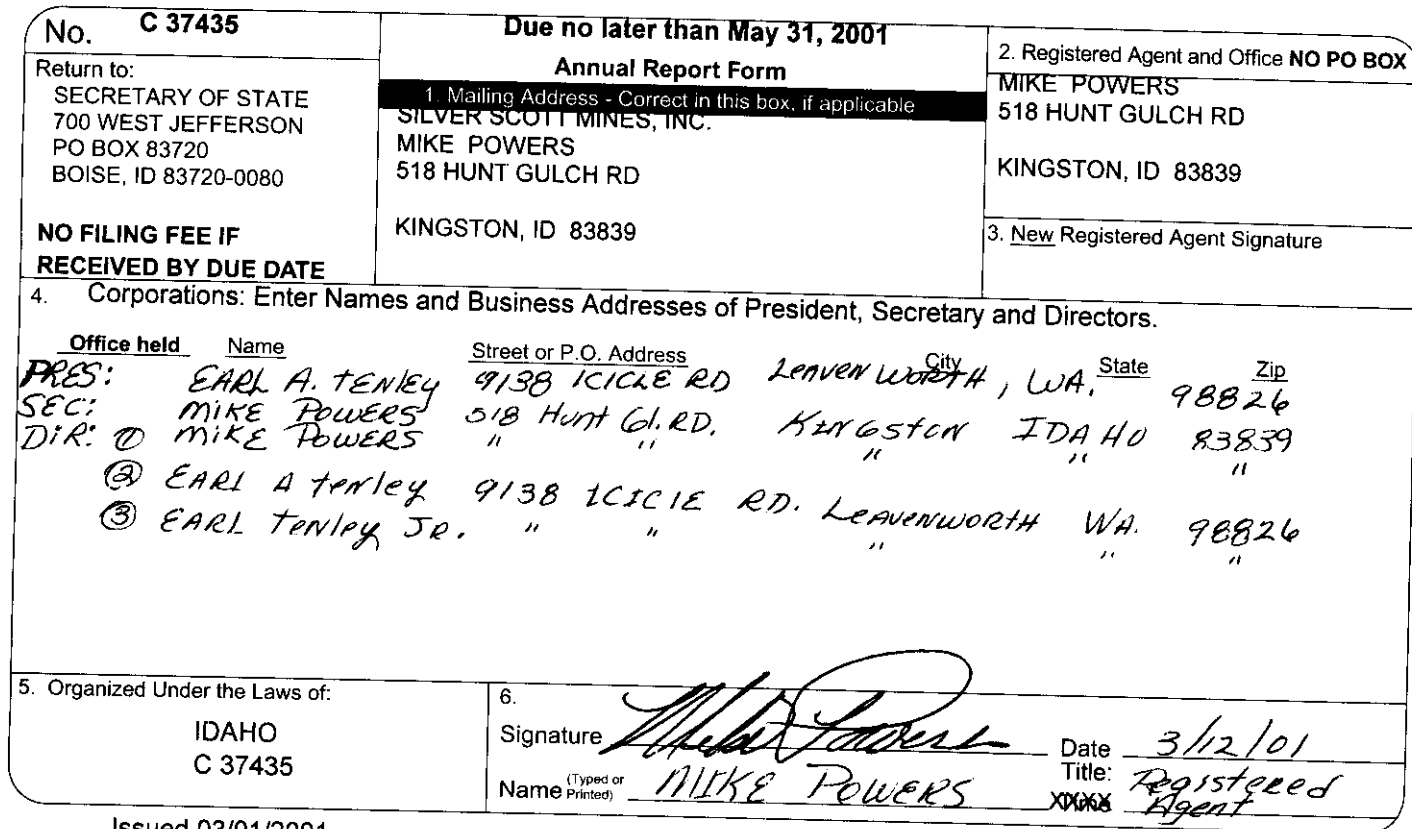 No. C 37435
Due no later than May 31, 2001
Annual Report Form
Return to:
SECRETARY OF STATE
700 WEST JEFFERSON
PO BOX 83720
BOISE, ID 83720-0080
NO FILING FEE IF
RECEIVED BY DUE DATE
1. Mailing Address - Correct in this box, if applicable
SILVER SCOTT MINES, INC.
MIKE POWERS
518 HUNT GULCH RD
KINGSTON, ID 83839
2. Registered Agent and Office NO PO BOX
MIKE POWERS
518 HUNT GULCH RD
KINGSTON, ID 83839
3. New Registered Agent Signature
4. Corporations: Enter Names and Business Addresses of President, Secretary and Directors.
Office held Name Street or P.O. Address City State Zip
PRES: EARL A. TENLEY 9138 ICICLE RD LEAVENWORTH, WA. 98826
SEC: MIKE POWERS 518 Hunt Gl. RD. KINGSTON IDAHO 83839
DIR: ① MIKE POWERS " " " " "
② EARL A TENLEY 9138 ICICLE RD. LEAVENWORTH WA. 98826
③ EARL TENLEY JR. " " " " "
5. Organized Under the Laws of:
IDAHO
C 37435
6.
Signature Mike Powers Date 3/12/01
Name (Typed or Printed) MIKE POWERS Title: Registered
XXXX Agent
Issued 03/01/2001